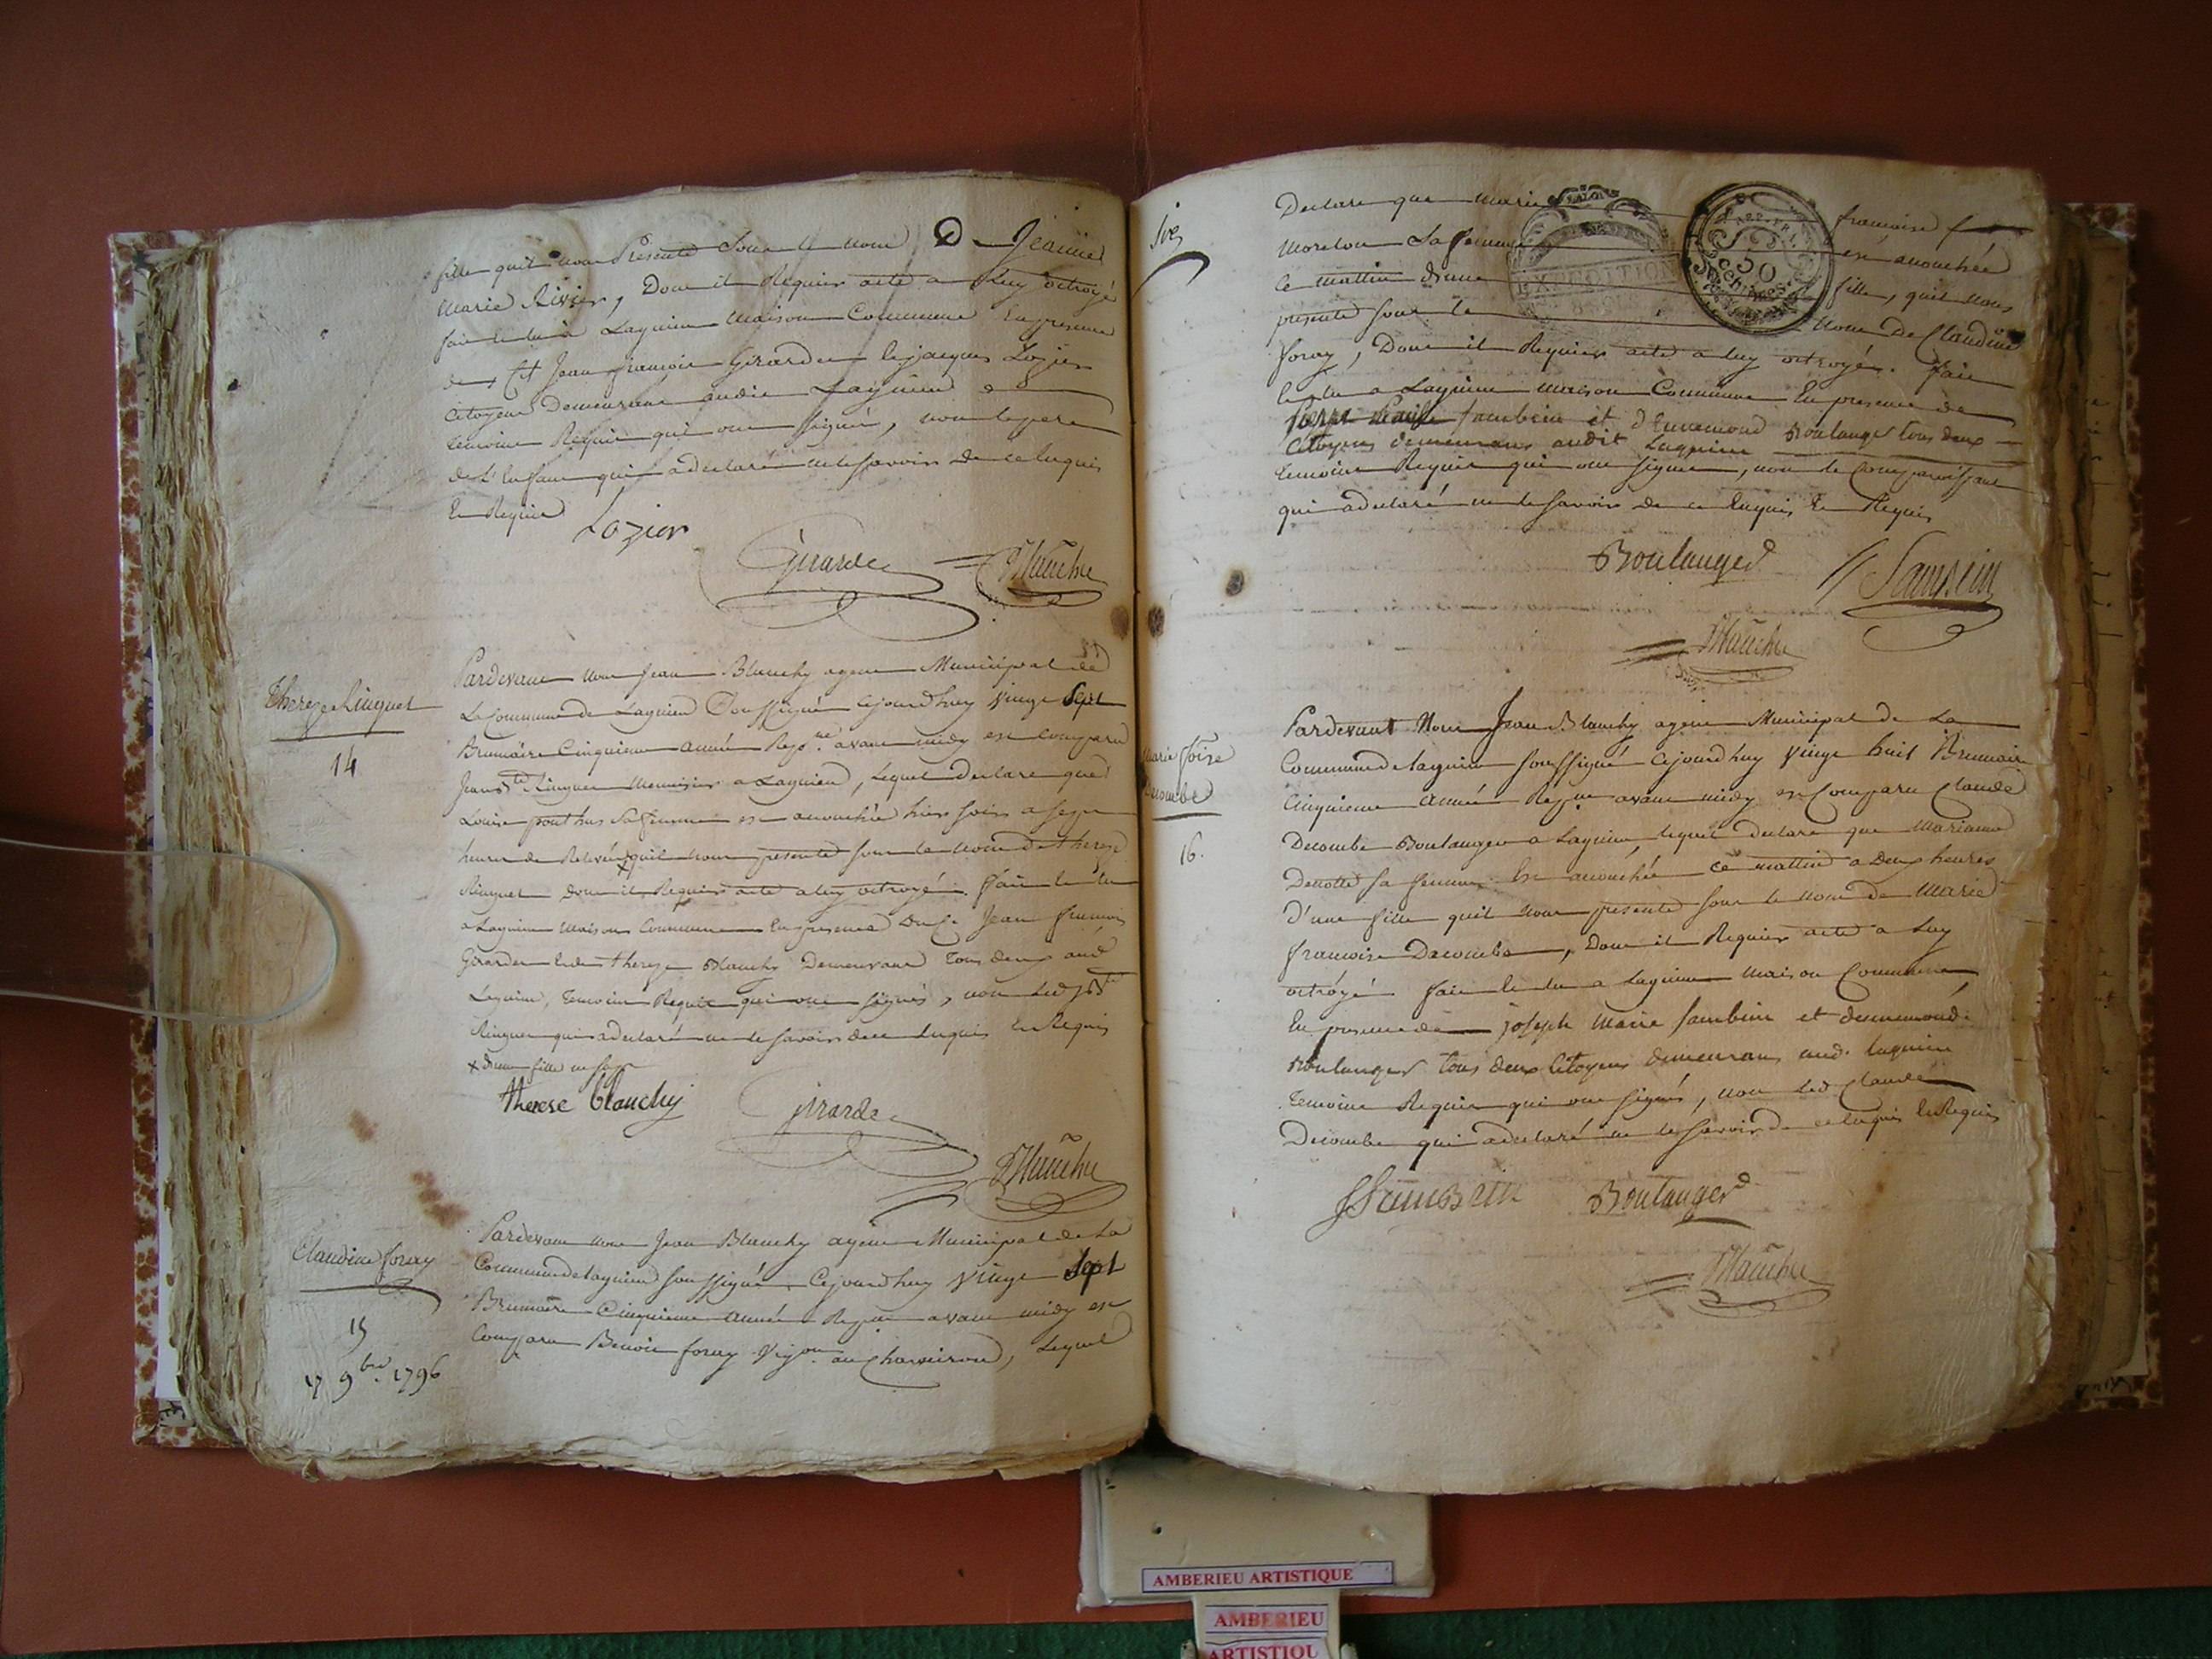 fille quil nous Presente sous le nom De Jeanne
Marie Rivier, Dont il Requier acte a Luy octroyé
fait le lu à Lagnieu Maison Commune En presence
de Cit Jean françois Girardet Jacques Lozier
Citoyens Demeurant audit Lagnieu
temoins Requis qui ont signé, non le pere
de L'Enfant qui a declaré ne le savoir de ce Enquis
En Requis
Lozier
Girarde
Blanchy
Therese Ringuet
14
Pardevant nous Jean Blanchy agent Municipal de
La Commune de Lagnieu Soussigné cejourdhuy vingt Sept
Brumaire Cinquieme année Rep.ne avant midy est comparu
Jean Ringuet Menuisier a Lagnieu, Lequel declare que
Louise ponthus Sa femme est accouchée hier soir a sept
heures de Relevé x quil nous presente sous le nom de therese
Ringuet dont il Requier acte a luy octroyé. fait le lu
a Lagnieu Maison Commune En presence Du C. Jean françois
Girardet therese Blanchy Demeurant Tous deux aud
Lagnieu, temoins Requis qui ont signés, non led
Ringuet qui a declaré ne le savoir de ce Enquis En Requis
x d'une fille
therese blanchy
Girarde
Blanchy
Claudine foray
15
17 9bre 1796
Pardevant nous Jean Blanchy agent Municipal de La
Commune de Lagnieu soussigné, Cejourdhuy vingt Sept
Brumaire Cinquieme année Rep.ne avant midy est
Comparu Benoit foray Vig.on au Charveiron, Lequel
Declare que Marie françoise
Morelon Sa femme est accouchée
ce mattin d'une fille, quil nous
presente sous le nom De Claudine
foray, Dont il Requier acte a luy octroyé. fait
le lu a Lagnieu maison Commune En presence de
Sambein et d'Ennemond Boulanger tous deux
Citoyens demeurans audit Lagnieu
temoins Requis qui ont signés, non le Comparoissant
qui a declaré ne le savoir de ce Enquis En Requis
50
Centimes
EXPEDITION
Boulanger
Sambein
Blanchy
Marie foise
Decombe
16.
Pardevant Nous Jean Blanchy agent Municipal de La
Commune de Lagnieu soussigné Cejourdhuy vingt huit Brumaire
Cinquieme année Rep.ne avant midy est Comparu Claude
Decombe Boulanger a Lagnieu, lequel declare que Marianne
Denotte sa femme est accouchée ce mattin a Deux heures
D'une fille quil nous presente sous le nom de Marie
françoise Decombe, Dont il Requier acte a Luy
octroyé fait le lu a Lagnieu maison Commune
En presence de joseph Marie Sambein et dennemond
Boulanger tous deux Citoyens demeurans aud. lagnieu
temoins Requis qui ont signés, non led Claude
Decombe qui a declaré ne le savoir de ce Enquis En Requis
Sambein
Boulanger
Blanchy
AMBERIEU ARTISTIQUE
AMBERIEU
ARTISTIQU